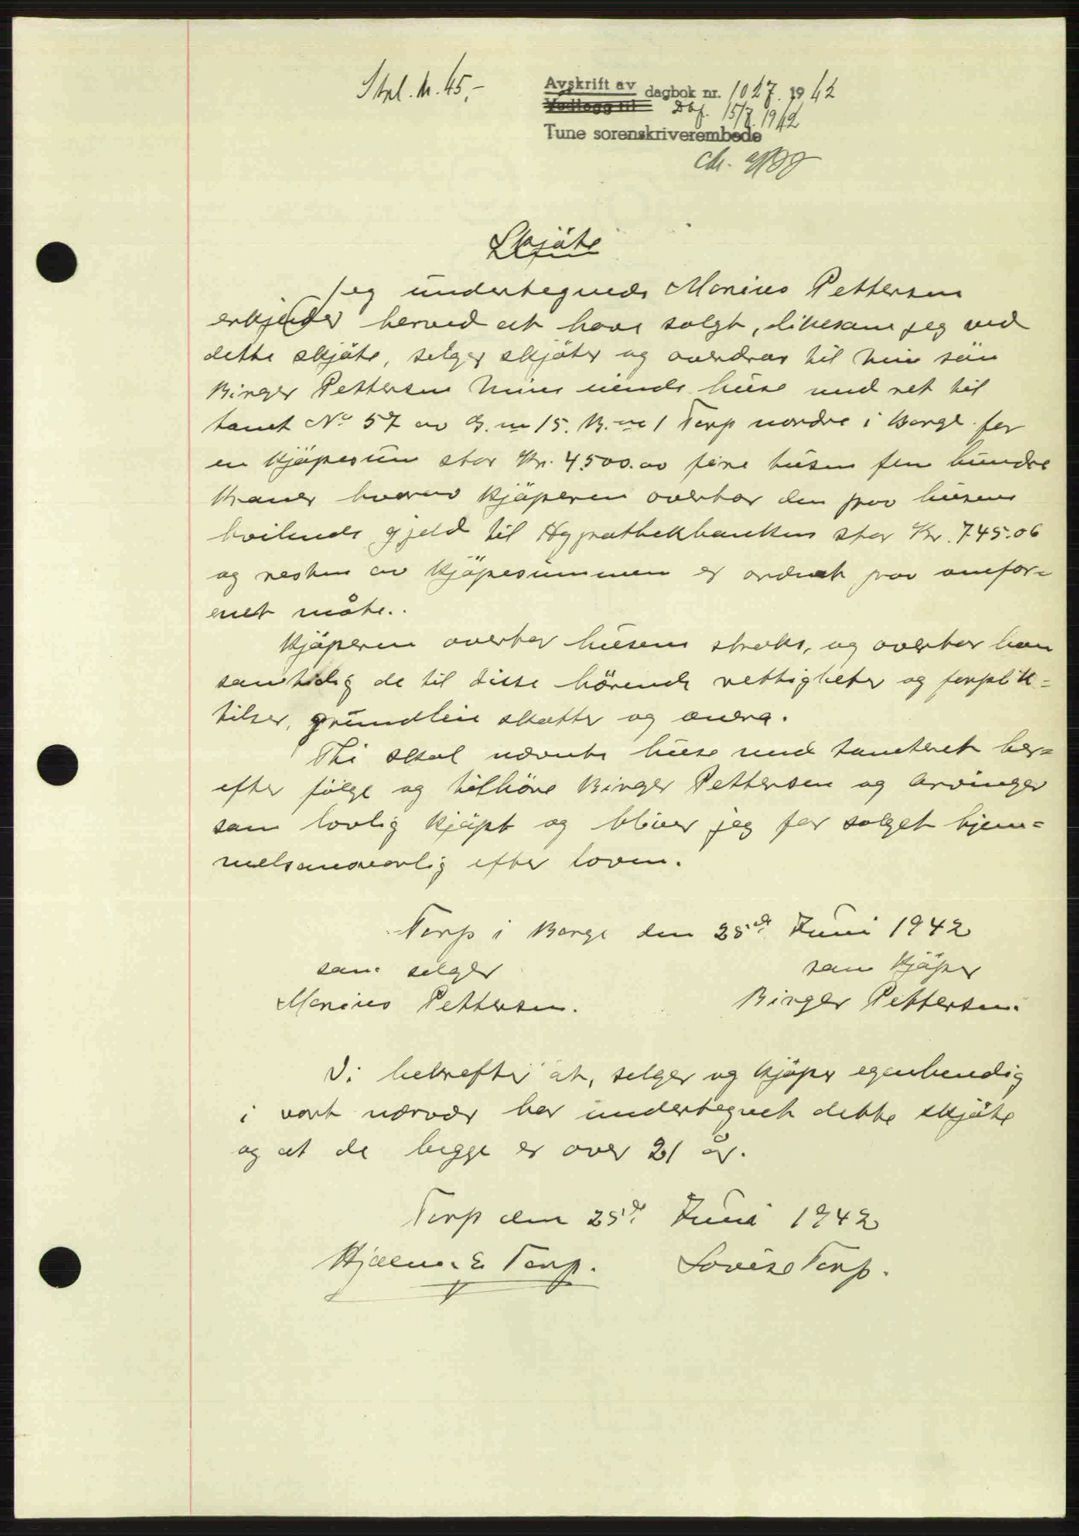 Stpl. kr. 45,-
Avskrift av dagbok nr. 1027. 1942
Vedlegg til Dbf. 15/7. 1942
Tune sorenskriverembede
Skjöte
Jeg undertegnede Marius Pettersen
erkjender herved at have solgt, likesom jeg ved
dette skjöte, selger skjöter og overdrar til min sön
Birger Pettersen mine eiende huse med ret til
tomt No 57 av G. nr 15. B. nr 1 Torp nordre i Borge for
en kjöpesum stor Kr. 4500.00 fire tusen fem hundre
Kroner hvorav kjöperen overtar den paa husene
hvilende gjeld til Hypothekbanken stor Kr. 745.06
og resten av kjöpesummen er ordnet paa omfor=
enet måte.
Kjöperen overtar husene straks, og overtar han
samtidig de til disse hörende rettigheter og forplik=
telser, grundleie skatter og anera.
Thi skal nævnte huse med tomteret her=
efter fölge og tilhöre Birger Pettersen og Arvinger
som lovlig kjöpt og bliver jeg for salget hjem=
melsansvarlig efter loven.
Torp i Borge den 25de Juni 1942
som selger som Kjöper
Marius Pettersen. Birger Pettersen.
Vi bekrefter at, selger og kjöper egenhendig
i vort nærvær har undertegnet dette skjöte
og at de begge er over 21 år.
Torp den 25de Juni 1942
Hjalmar E Torp. Lovise Torp.